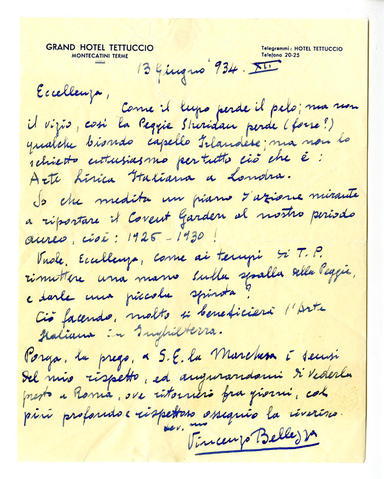 GRAND HOTEL TETTUCCIO
MONTECATINI TERME
Telegrammi: HOTEL TETTUCCIO
Telefono 20-25
13 Giugno 934. XII
Eccellenza,
Come il lupo perde il pelo; ma non
il vizio, così la Peggie Sheridan perde (forse?)
qualche biondo capello Irlandese; ma non lo
schietto entusiasmo per tutto ciò che è:
Arte Lirica Italiana a Londra.
So che medita un piano d'azione mirante
a riportare il Covent Garden al nostro periodo
aureo, cioè: 1925-1930!
Vuole, Eccellenza, come ai tempi di T.P.
rimettere una mano sulla spalla della Peggie,
e darle una piccola spinta?
Ciò facendo, molto si beneficierà l'Arte
Italiana in Inghilterra.
Porga, la prego, a S.E. la Marchesa i sensi
del mio rispetto, ed augurandomi di vederla
presto a Roma, ove ritornerò fra giorni, col
più profondo e rispettoso ossequio la riverisco.
dev. mo
Vincenzo Bellezza